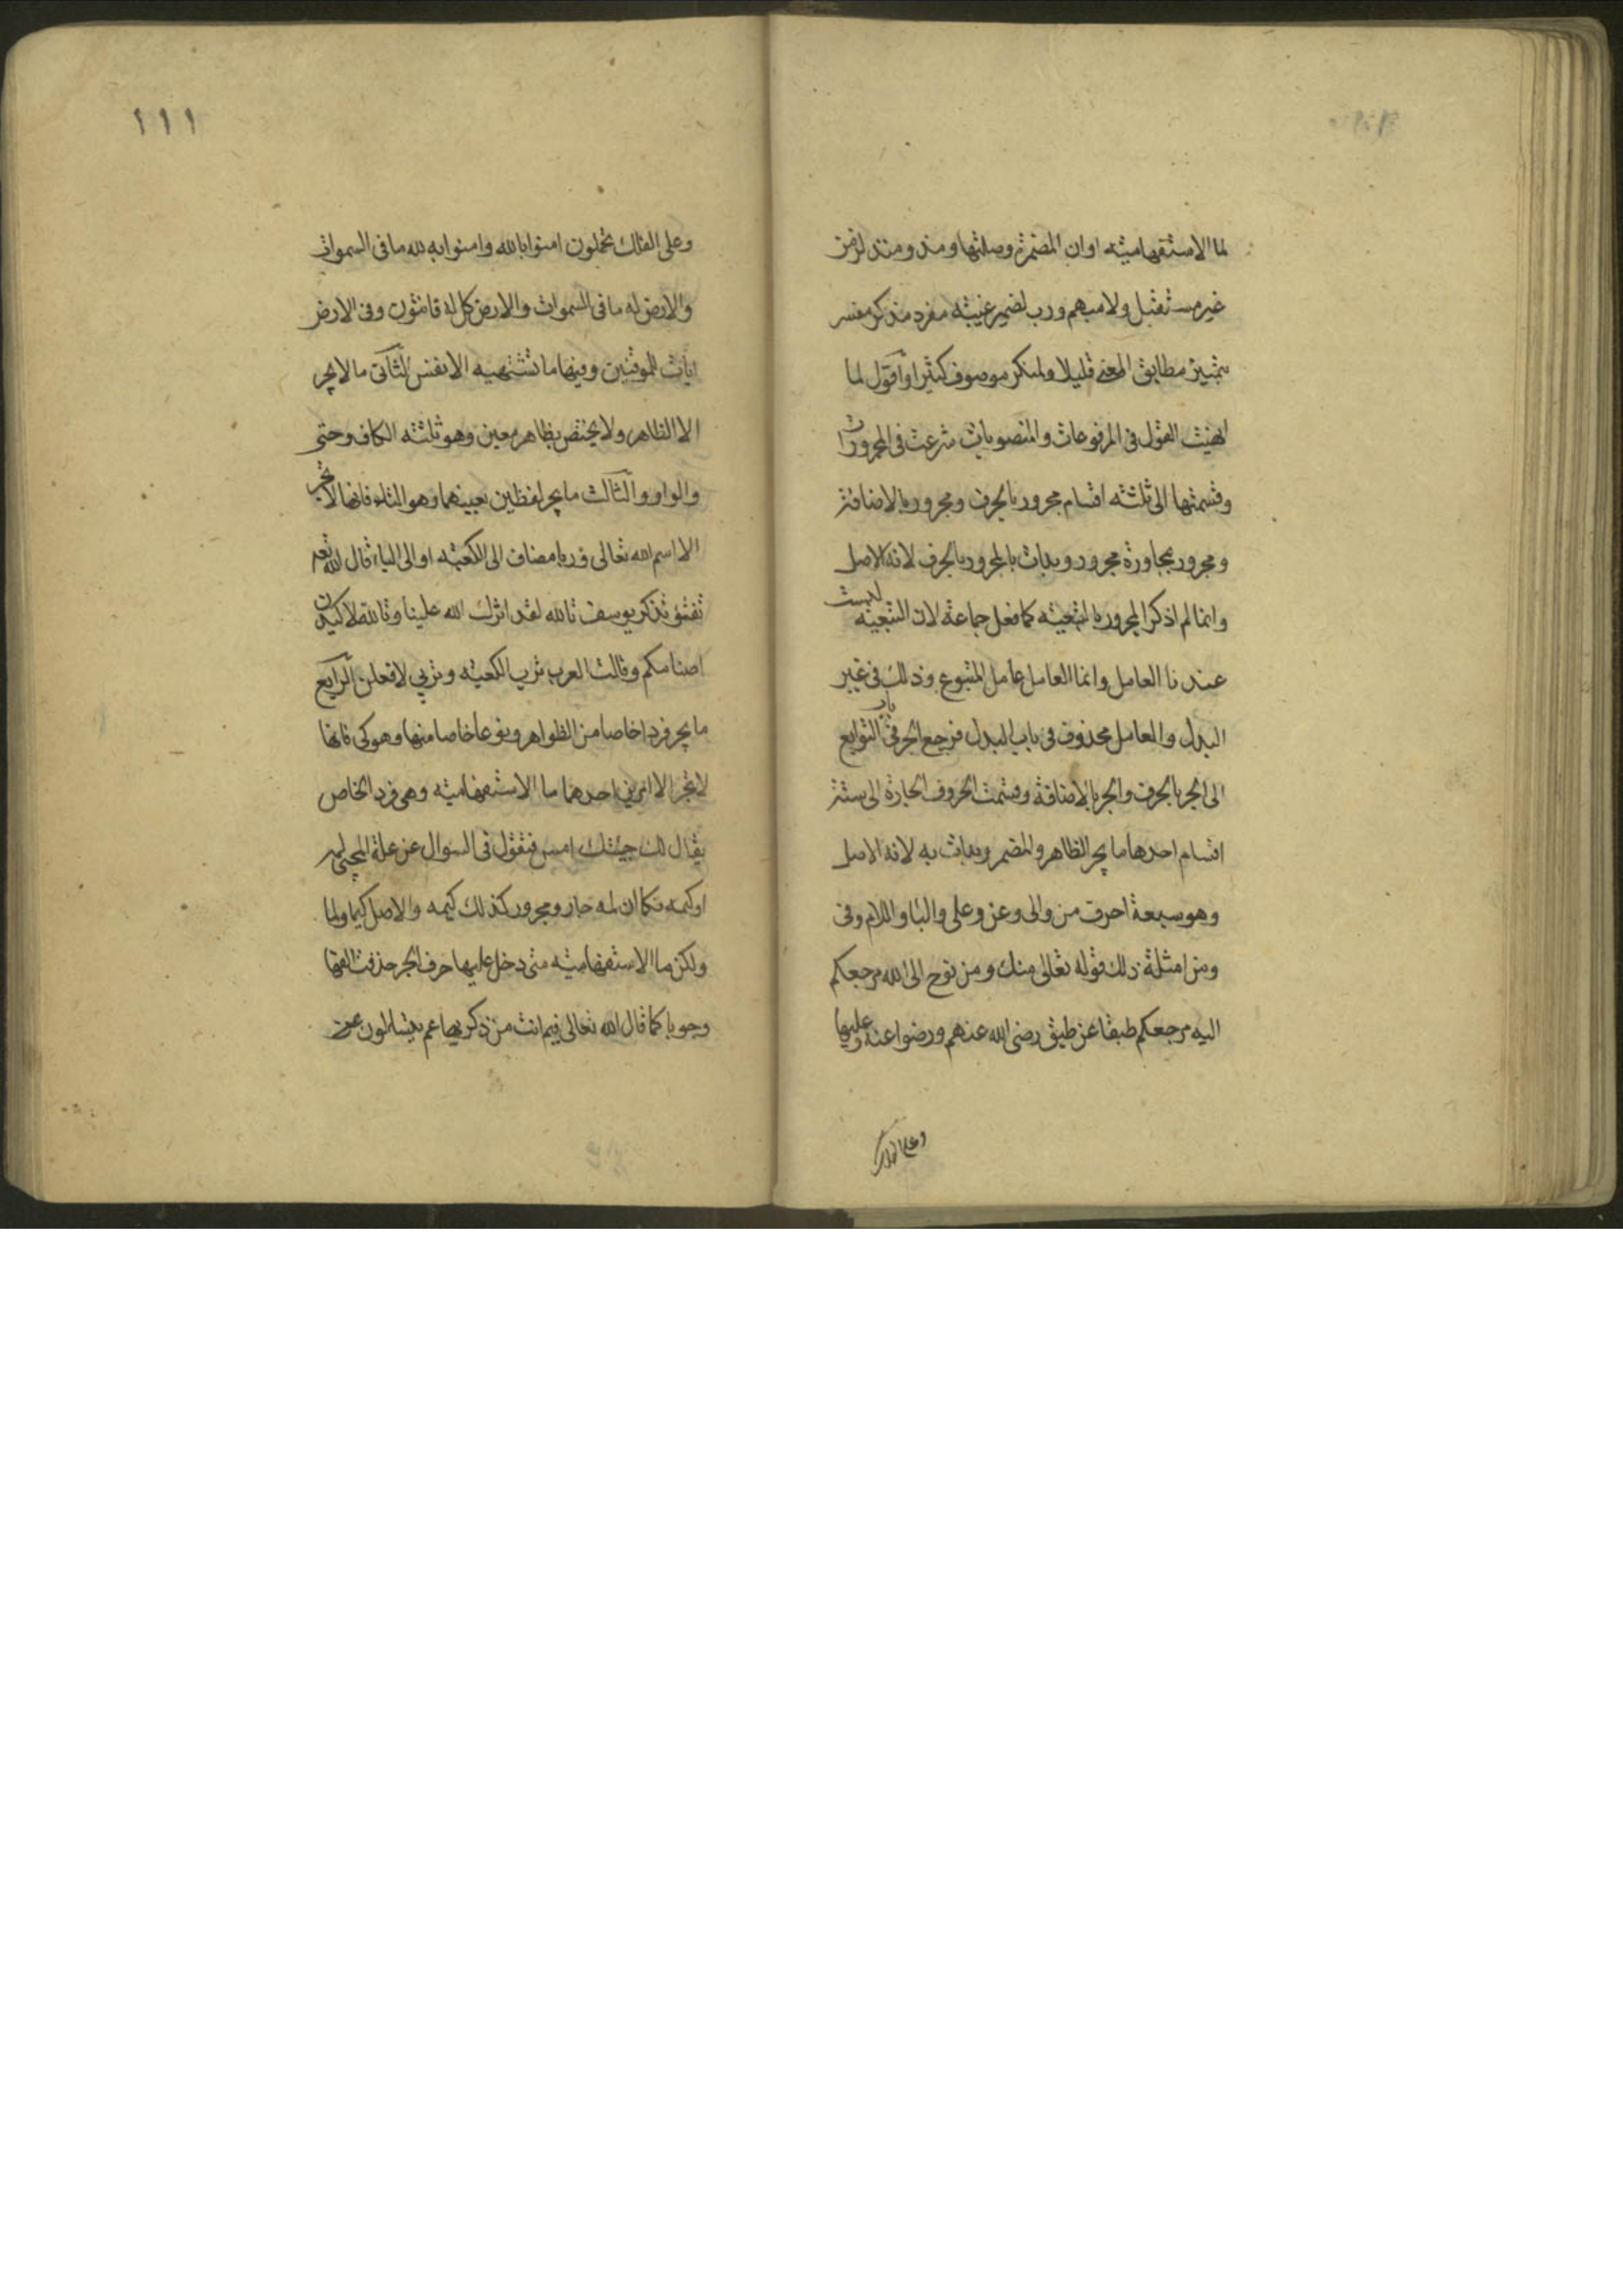 لما الاستفهامية او ان المضمرة وصلتها ومذ ومنذ لزمن
غير مستقبل ولا مبهم ورب لضمير غيبة مفرد مذكر مفسر
بتمييز مطابق المعنى قليلا ولمنكر موصوف كثيرا واقول لما
انهيت القول في المرفوعات والمنصوبات شرعت في المجرورات
وقسمتها الى ثلثة اقسام مجرور بالحرف ومجرور بالاضافة
ومجرور بمجاورة مجرور وبدات بالمجرور بالحرف لانه الاصل
وانما لم اذكر المجرور بالتبعية كما فعل جماعة لان التبعية ليست
عندنا العامل وانما العامل عامل المتبوع وذلك في غير
البدل والعامل محذوف في باب البدل فرجع الجر في باب التوابع
الى الجر بالحرف والجر بالاضافة وقسمت الحروف الجارة الى ستة
اقسام احدها ما يجر الظاهر والمضمر وبدات به لانه الاصل
وهو سبعة احرف من والى وعن وعلى والبا واللام وفى
ومن امثلة ذلك قوله تعالى منك ومن نوح الى الله مرجعكم
اليه مرجعكم طبقا عن طبق رضى الله عنهم ورضوا عنه وعليها
وعلى الفلك
١١١
وعلى الفلك تحملون امنوا بالله وامنوا به لله ما فى السموات
والارض له ما فى السموات والارض كل له قانتون وفى الارض
ايات للموقنين وفيها ما تشتهيه الانفس الثانى ما لا يجر
الا الظاهر ولا يختص بظاهر معين وهو ثلثة الكاف وحتى
والواو والثالث ما يجر لفظين بعينهما وهو التاء فانها لا تجر
الا اسم الله تعالى وربا مضاف الى الكعبة او الى الياء قال الله تعا
تفتؤ تذكر يوسف تالله لقد اثرك الله علينا وتالله لاكيدن
اصنامكم وقالت العرب ترب الكعبة وتربي لافعلن الرابع
ما يجر فردا خاصا من الظواهر ونوعا خاصا منها وهو كى فانها
لا تجر الا امرين احدهما ما الاستفهامية وهى فرد الخاص
يقال لك جيئتك امس فتقول فى السوال عن علة المجئ لمه
او كيمه فكما ان لمه جار ومجرور كذلك كيمه والاصل كيما ولما
ولكن ما الاستفهامية متى دخل عليها حرف الجر حذفت الفها
وجوبا كما قال الله تعالى فيم انت من ذكريها عم يتساءلون